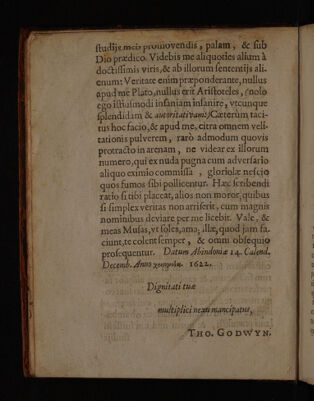 studijs meis promovendis, palam, & sub
Dio prædico. Videbis me aliquoties alium à
doctissimis viris, & ab illorum sententijs ali-
enum: Veritate enim præponderante, nullus
apud me Plato, nullus erit Aristoteles, (nolo
ego istiusmodi insaniam insanire, vtcunque
splendidam & autoritativam;) Cæterùm taci-
tus hoc facio, & apud me, citra omnem veli-
tationis pulverem, rarò admodum quovis
protracto in arenam, ne videar ex illorum
numero, qui ex nuda pugna cum adversario
aliquo eximio commissa, gloriolæ nescio
quos fumos sibi pollicentur. Hæc scribendi
ratio si tibi placeat, alios non moror, quibus
si simplex veritas non arriserit, cum magnis
nominibus deviare per me licebit. Vale, &
meas Musas, vt soles, ama; illæ, quod jam fa-
ciunt, te colent semper, & omni obsequio
prosequentur. Datum Abindoniæ 14. Calend.
Decemb. Anno 1622.
Dignitati tuæ
multiplici nexu mancipatus,
THO. GODWYN.